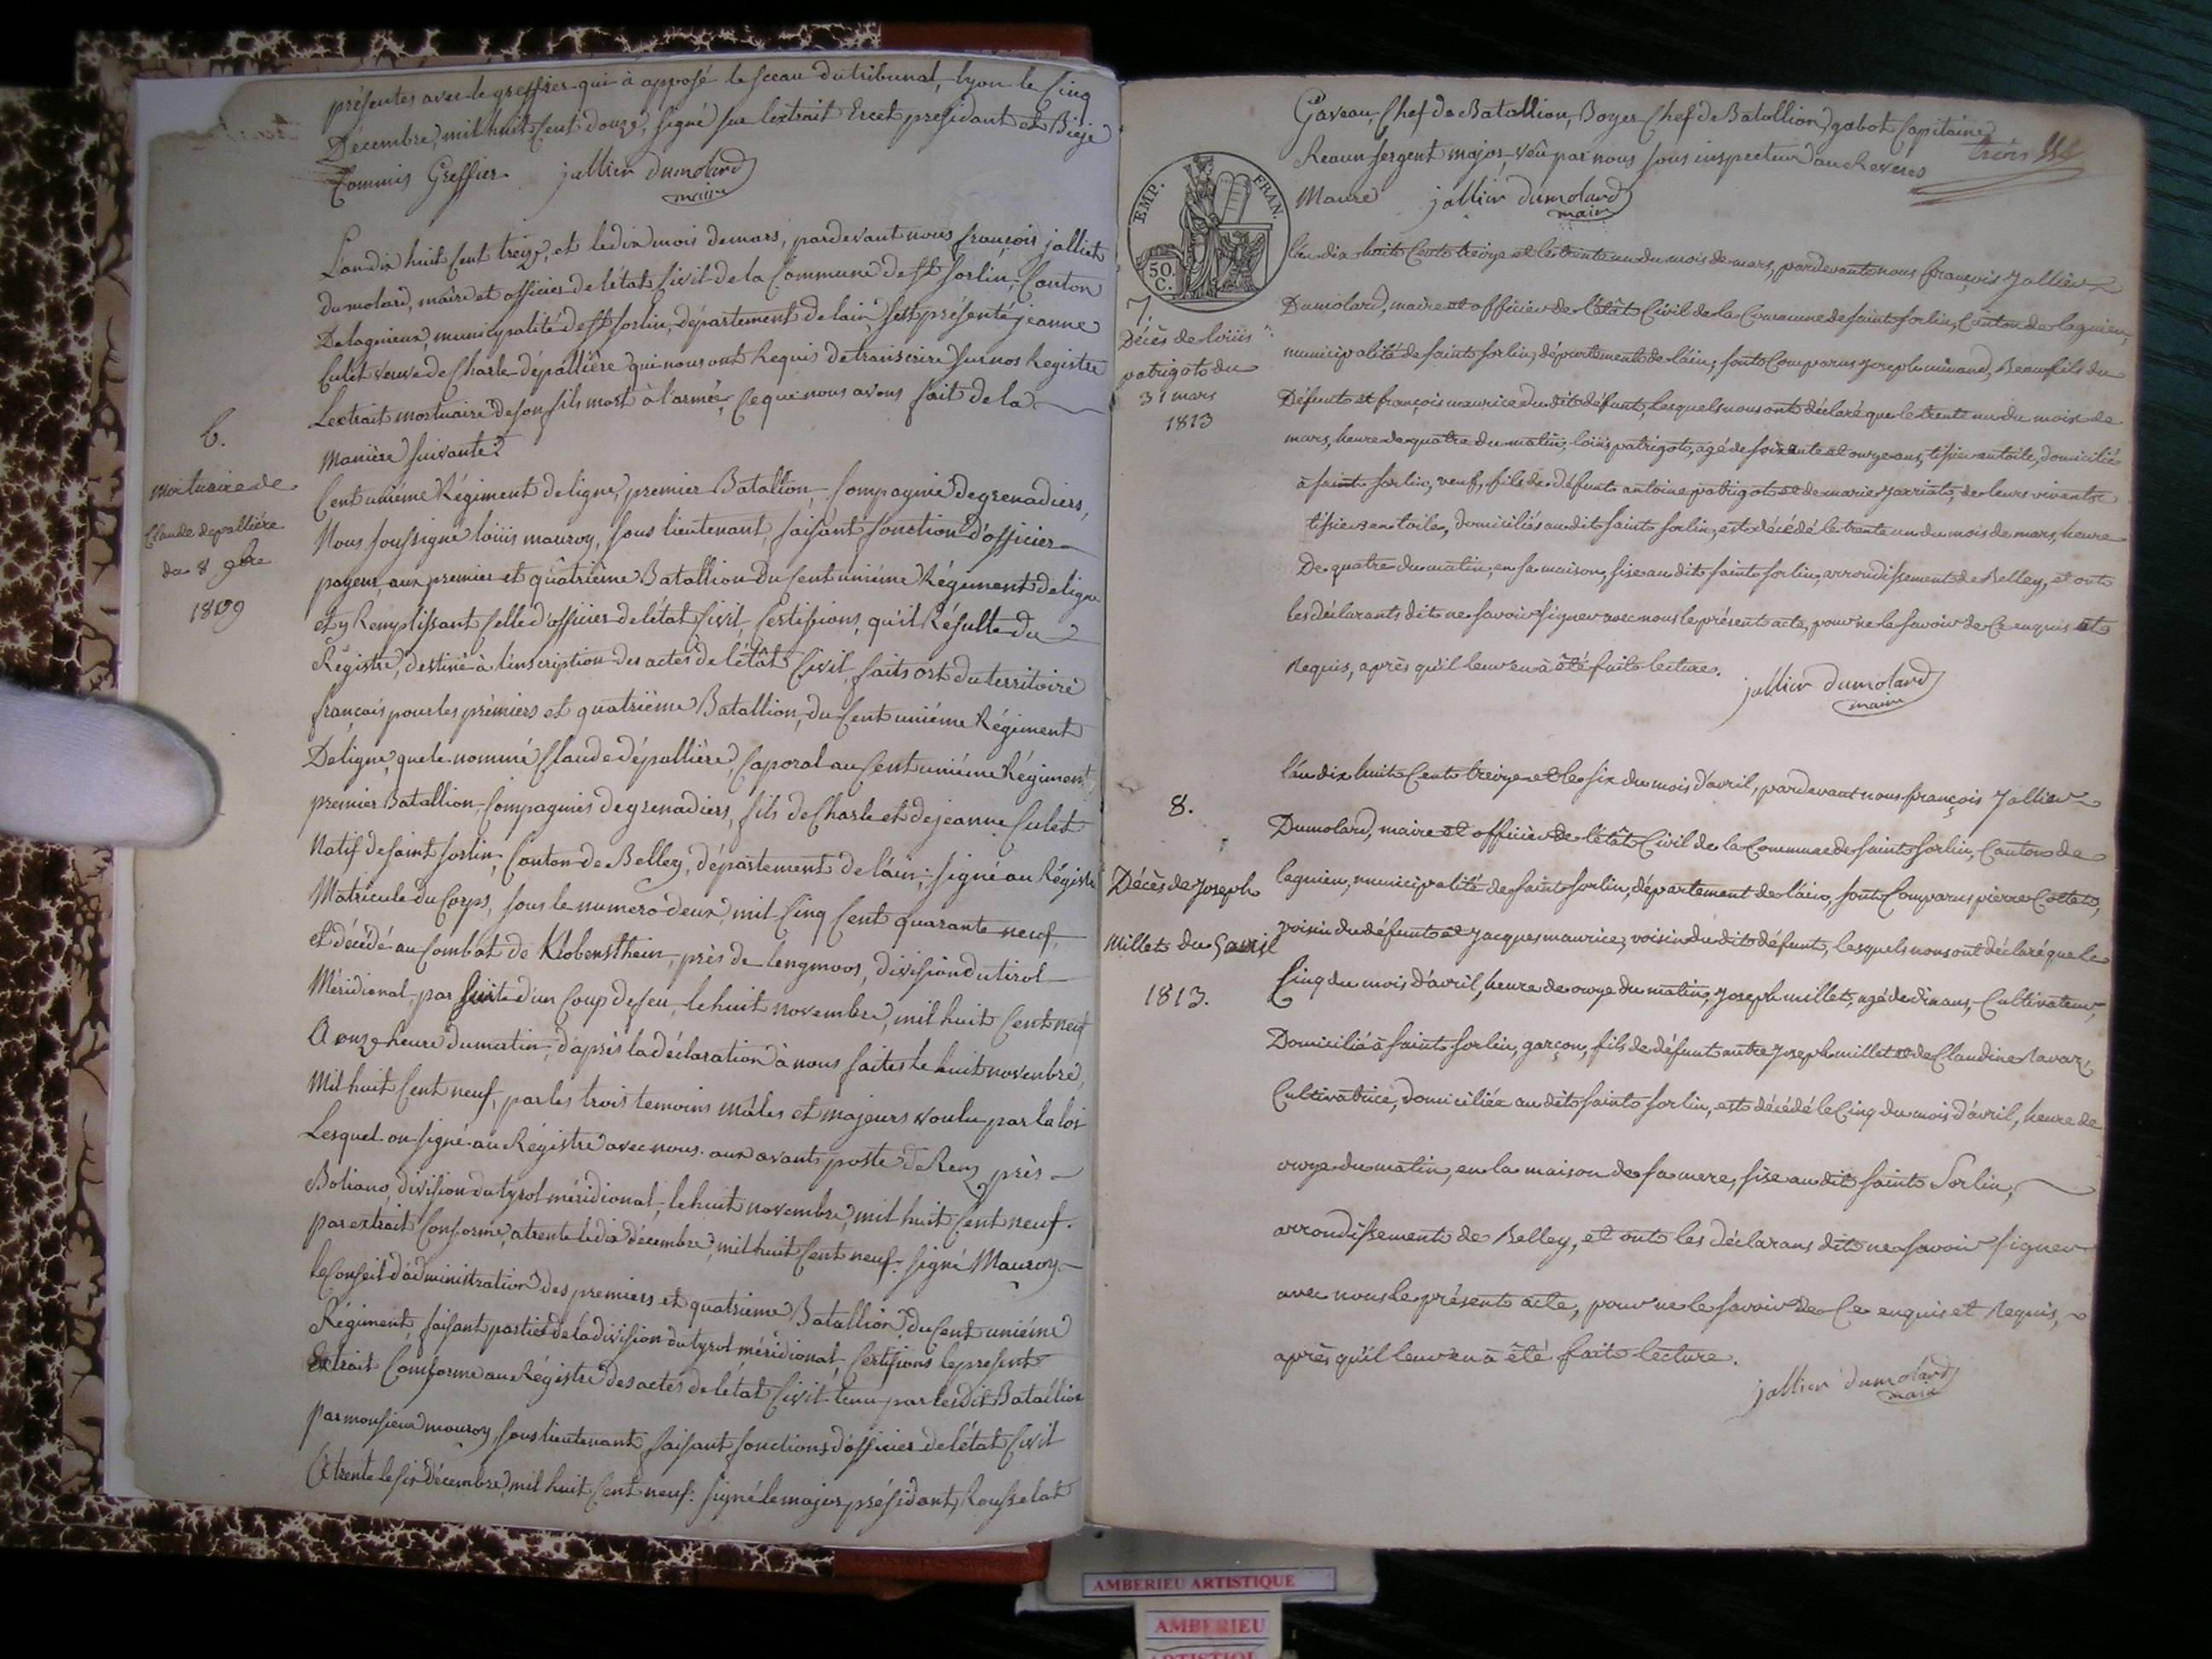 présentes avec le greffier qui à apposé le sceau du tribunal, lyon le Cinq
Décembre, mil huit Cent douze, signé sur l'extrait Ercet presidant et Bieje
Commis Greffier. jallier dumolard
maire
L'an dix huit Cent treize, et le dix mois de mars, pardevant nous françois jalliet
Dumolard, maire et officier de l'état Civil de la Commune de st sorlin, Canton
De lagnieux, municipalité de st sorlin, département de lain, sest présenté jeanne
Culet veuve de Charle dépallière qui nous ont Requis de transcrire sur nos Registre
L'extrait mortuaire de son fils mort à l'armée, Ce que nous avons fait de la
Manière suivante
6.
Mortuaire de
Claude depallière
du 8 9bre
1809
Cent uniéme Régiment de ligne, premier Batallion, Compagnie de grenadiers,
Nous soussigné loüis mauroy, sous lieutenant, faisant fonction d'officier
payeur, aux premier et quâtriême Batallion du Cent uniéme Régiment de ligne
et y Remplissant Celle d'officier de l'état Civil, Certifions, qu'il Résulte du
Régistre, destiné à l'inscription des actes de l'êtât Civil, faits ort du territoire
français pour les prémiers et quatriéme Batallion, du Cent uniéme Régiment
De ligne, que le nommé Claude dépallière, Caporal au Cent uniéme Régiment,
premier Batallion, Compagnies de grenadiers, fils de Charle et de jeanne Culet
Natif de saint sorlin, Canton de Belley, département de l'ain; signé au Régistre
Matricule du Corps, sous le numero deux mil Cinq Cent quarante neuf,
est décédé au Combat de Klobensthein, près de lengmoos, division du tirol
Méridional, par suite d'un Coup de feu, le huit novembre, mil huit Cent neuf
A onze heure du matin, d'aprés la déclaration à nous faites le huit novembre,
Mil huit Cent neuf, par les trois temoins mâles et majeurs voulu par la loi
Lesquel on signé au Régistre avec nous. aux avants poste de Renz près
Bolzano, division du tyrol méridional, le huit novembre, mil huit Cent neuf.
par extrait Conforme, a trente le dix décembre, mil huit Cent neuf. signé Mauroy
le Conseil d'administration des premiers et quatrieme Batallion, du Cent uniéme
Régiment, faisant partie de la division du tyrol méridional, Certifions le present
Extrait Comforme au Régistre des actes de l'état Civil tenu par les dit Batallion
Par monsieur mauroy, sous lieutenant faisant fonctions d'officier de l'état Civil
A trente le six décembre, mil huit Cent neuf. signé le major présidant, Rousselat
Gaveau, Chef de Batallion, Boyer Chef de Batallion, gabot Capitaine
Reaun sergent major, veü par nous sous inspecteur au Reveues
trois
Maure jallier dumolard
maire
EMP. FRAN.
50.
C.
7.
Décès de loüis
patrigot du
31 mars
1813
l'an dix huit Cent treize et le trente un du mois de mars, pardevant nous françois Jallier
Dumolard, maire et officier de l'êtât Civil de la Commune de saint sorlin, Canton de lagnieu,
municipalité de saint sorlin, département de l'ain; sont Comparus Joseph minand, Beau fils du
Défunt et françois maurice du dit défunt, lesquels nous ont déclaré que le trente un du mois de
mars, heure de quatre du matin, loüis patrigot, agé de soixante et onze ans, tissier en toile, domicilié
à saint sorlin, veuf, fils de défunt antoine patrigot et de marie Jarriat, de leurs vivents
tissiers en toiles, domiciliés au dit saint sorlin, est décédé le trente un du mois de mars, heure
De quatre du matin, en sa maison, sise au dit saint sorlin, arrondissement de Belley, et ont
les déclarants dit ne savoir signer avec nous le présent acte, pour ne le savoir de Ce enquis et
Requis, après qu'il leur en à êté fait lecture.
jallier dumolard
maire
8.
Décès de Joseph
Millet du 5 avril
1813.
l'an dix huit Cent treize et le six du mois d'avril, pardevant nous françois Jallier
Dumolard, maire et officier de l'êtât Civil de la Commune de saint sorlin, Canton de
lagnieu, municipalité de saint sorlin, département de l'ain, sont Comparus pierre Cottet,
voisin du défunt et Jacques maurice, voisin du dit défunt, lesquels nous ont déclaré que le
Cinq du mois d'avril, heure de onze du matin, Joseph millet, agé de dix ans, Cultivateur,
Domicilié à saint sorlin, garçon, fils de défunt autre Joseph millet et de Claudine Navarz
Cultivâtrice, domiciliée au dit saint sorlin, est décédé le Cinq du mois d'âvril, heure de
onze du matin, en la maison de sa mere, sise au dit saint Sorlin,
arrondissement de Belley, et ont les déclarans dit ne savoir signer
avec nous le présent acte, pour ne le savoir de Ce enquis et Requis,
après qu'il leur en à êté fait lecture.
jallier dumolard
maire
AMBERIEU ARTISTIQUE
AMBERIEU
ARTISTIQUE